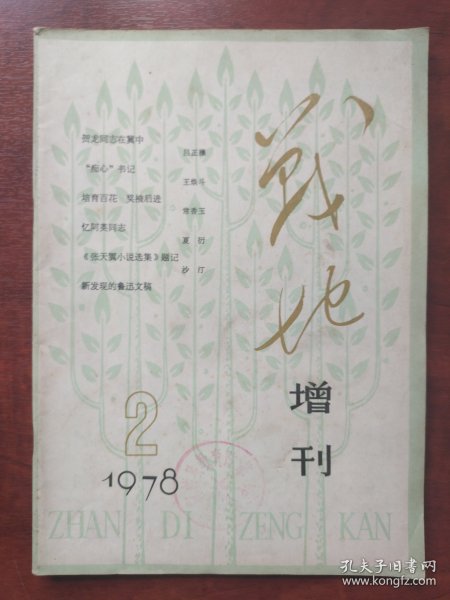 贺龙同志在冀中
吕正操
“痴心”书记
王焕斗
培育百花 奖掖后进
常香玉
忆阿英同志
夏衍
《张天翼小说选集》题记
沙汀
新发现的鲁迅文稿
战地
增刊
2
1978
ZHAN DI ZENG KAN
孔夫子旧书网
www.kongfz.com